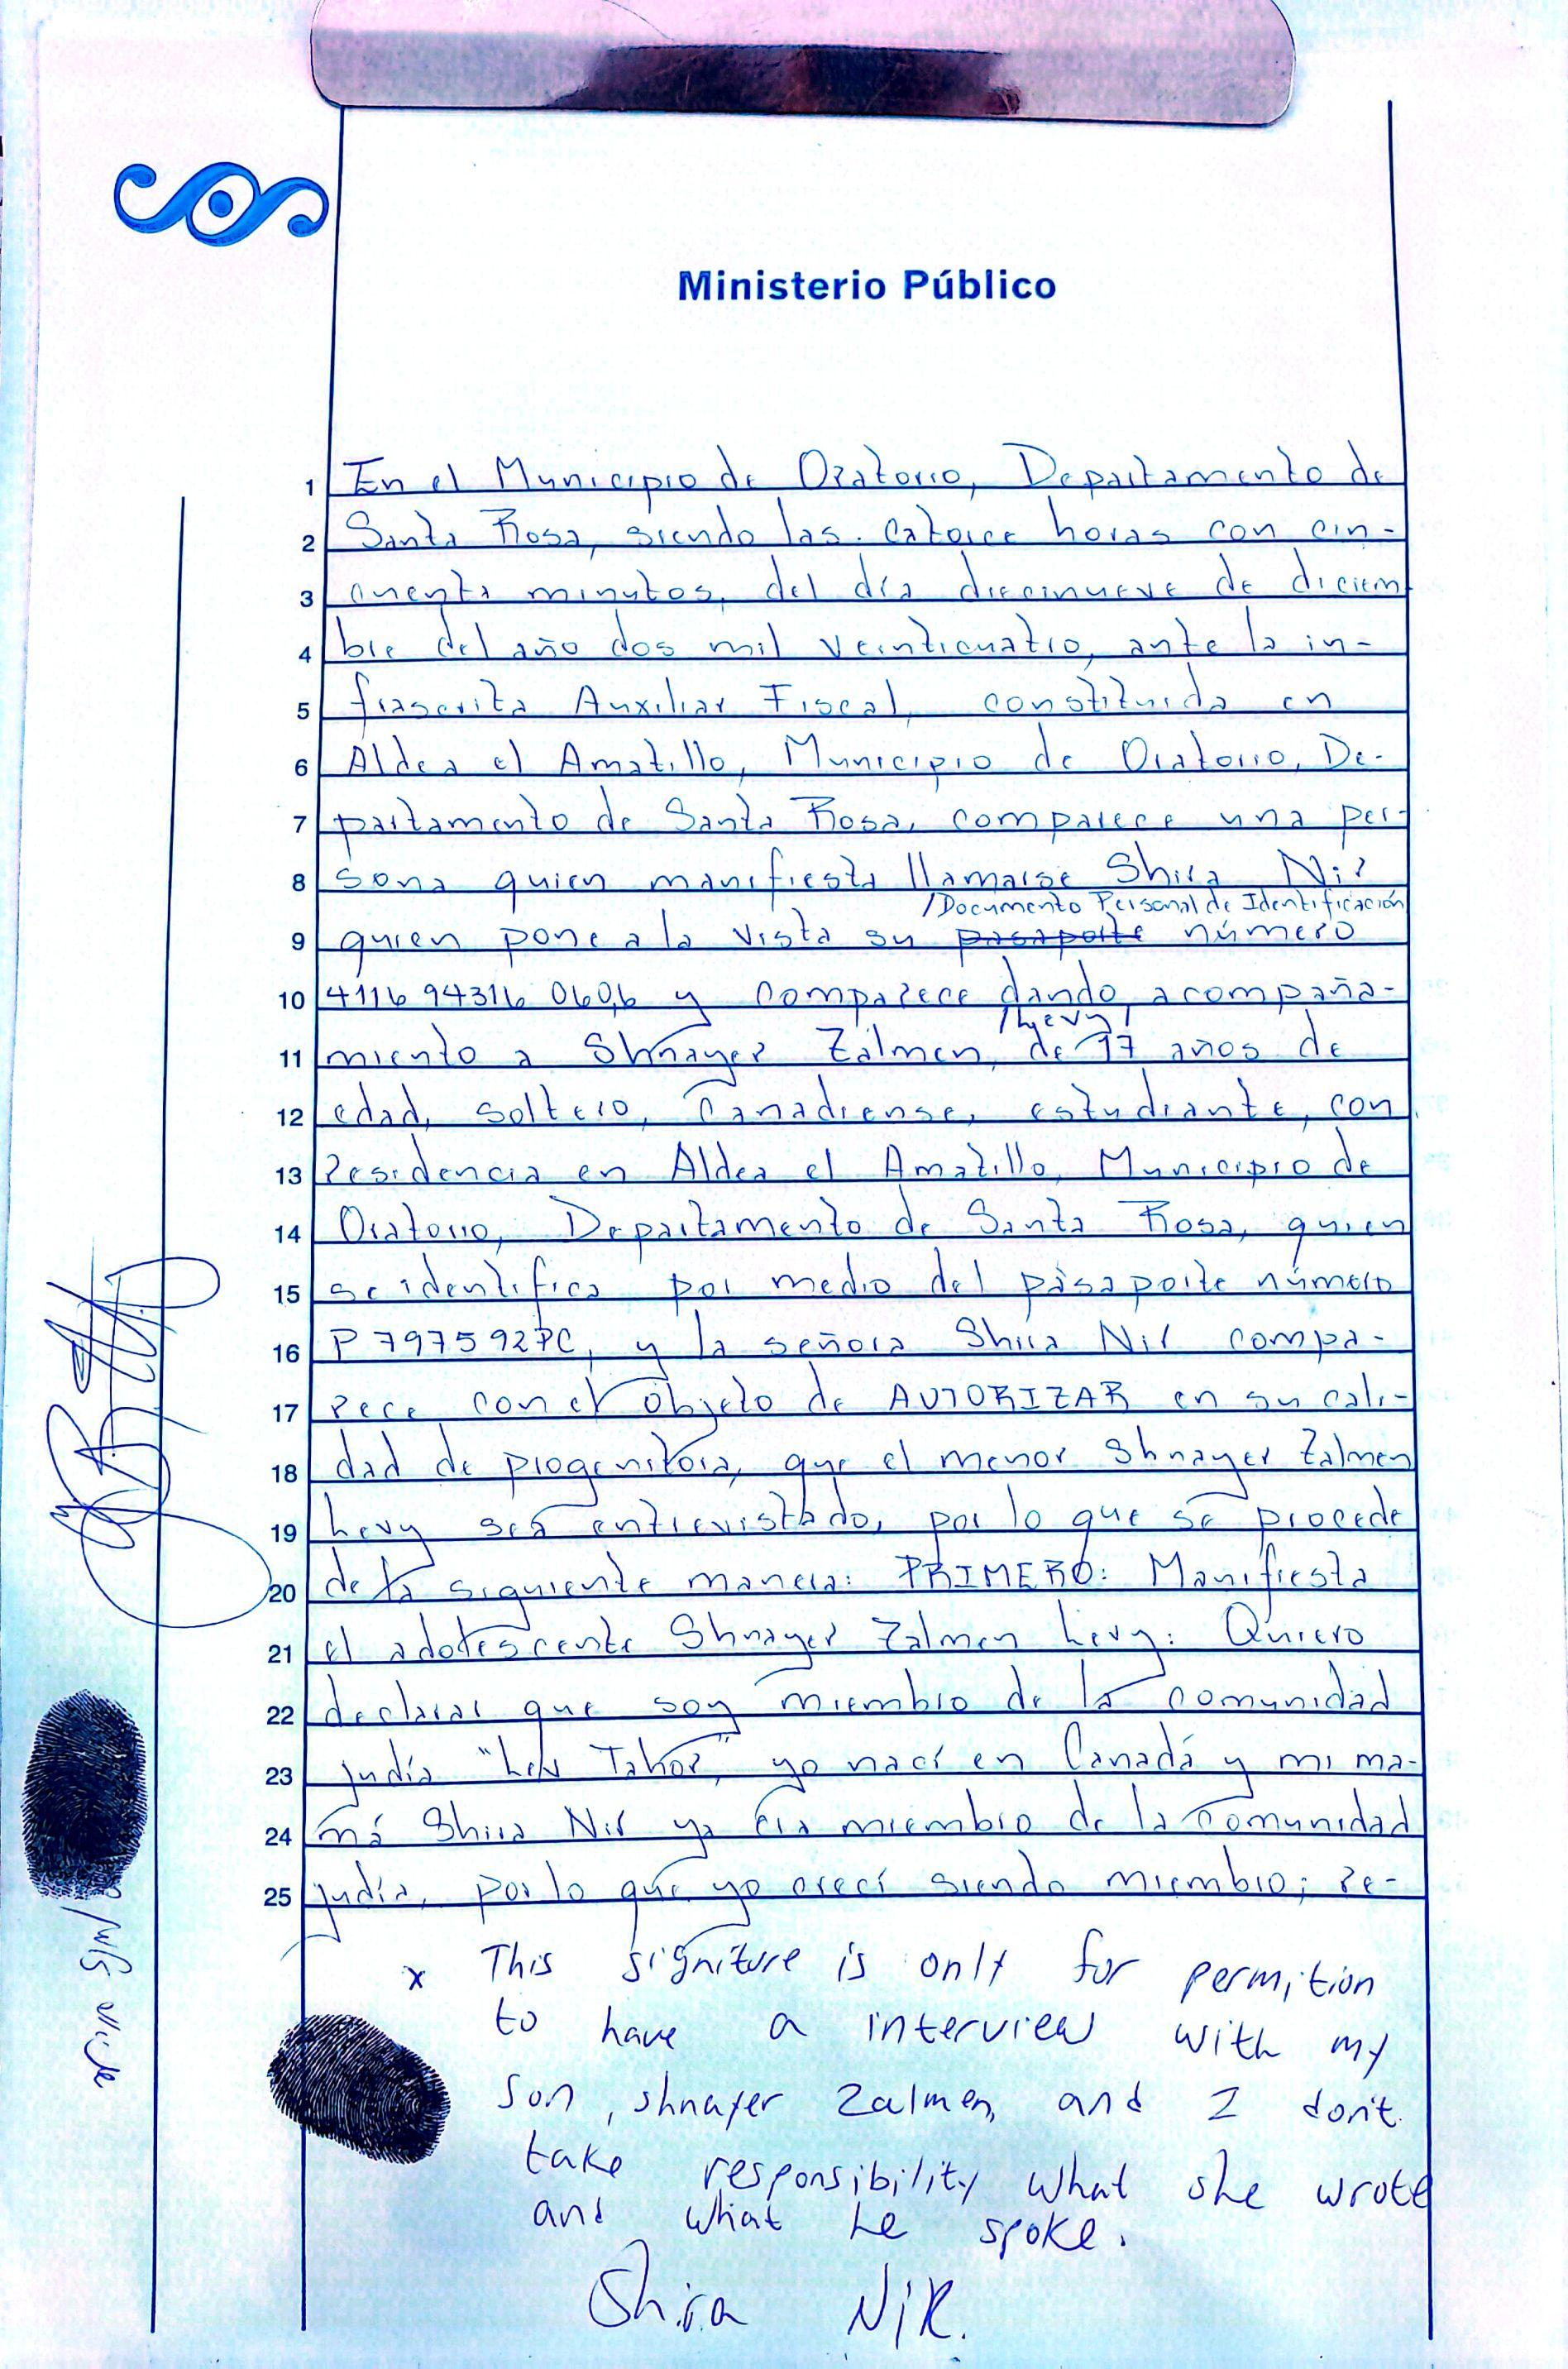 Ministerio Público
1 En el Municipio de Oratorio, Departamento de
2 Santa Rosa, siendo las. catorce horas con cin-
3 cuenta minutos, del día diecinueve de diciem
4 bre del año dos mil veinticuatro, ante la in-
5 frascrita Auxiliar Fiscal, constituida en
6 Aldea el Amatillo, Municipio de Oratorio, De-
7 partamento de Santa Rosa, comparece una per-
8 sona quien manifiesta llamarse Shira Nir
/Documento Personal de Identificación
9 quien pone a la vista su pasaporte número
10 4116 94316 0606 y comparece dando acompaña-
/Levy/
11 miento a Shnayer Zalmen, de 17 años de
12 edad, soltero, Canadiense, estudiante, con
13 residencia en Aldea el Amatillo, Municipio de
14 Oratorio, Departamento de Santa Rosa, quien
15 se identifica por medio del pasaporte número
16 P797592PC, y la señora Shira Nir compa-
17 rece con el objeto de AUTORIZAR en su cali-
18 dad de progenitora, que el menor Shnayer Zalmen
19 Levy sea entrevistado, por lo que se procede
20 de la siguiente manera: PRIMERO: Manifiesta
21 el adolescente Shnayer Zalmen Levy: Quiero
22 declarar que soy miembro de la comunidad
23 judía "Lev Tahor", yo nací en Canadá y mi ma-
24 má Shira Nir ya era miembro de la comunidad
25 judía, por lo que yo crecí siendo miembro; re-
x This signiture is only for permition
to have a interview with my
son, shnayer Zalmen, and I don't
take responsibility what she wrote
and what he spoke.
Shira Nir.